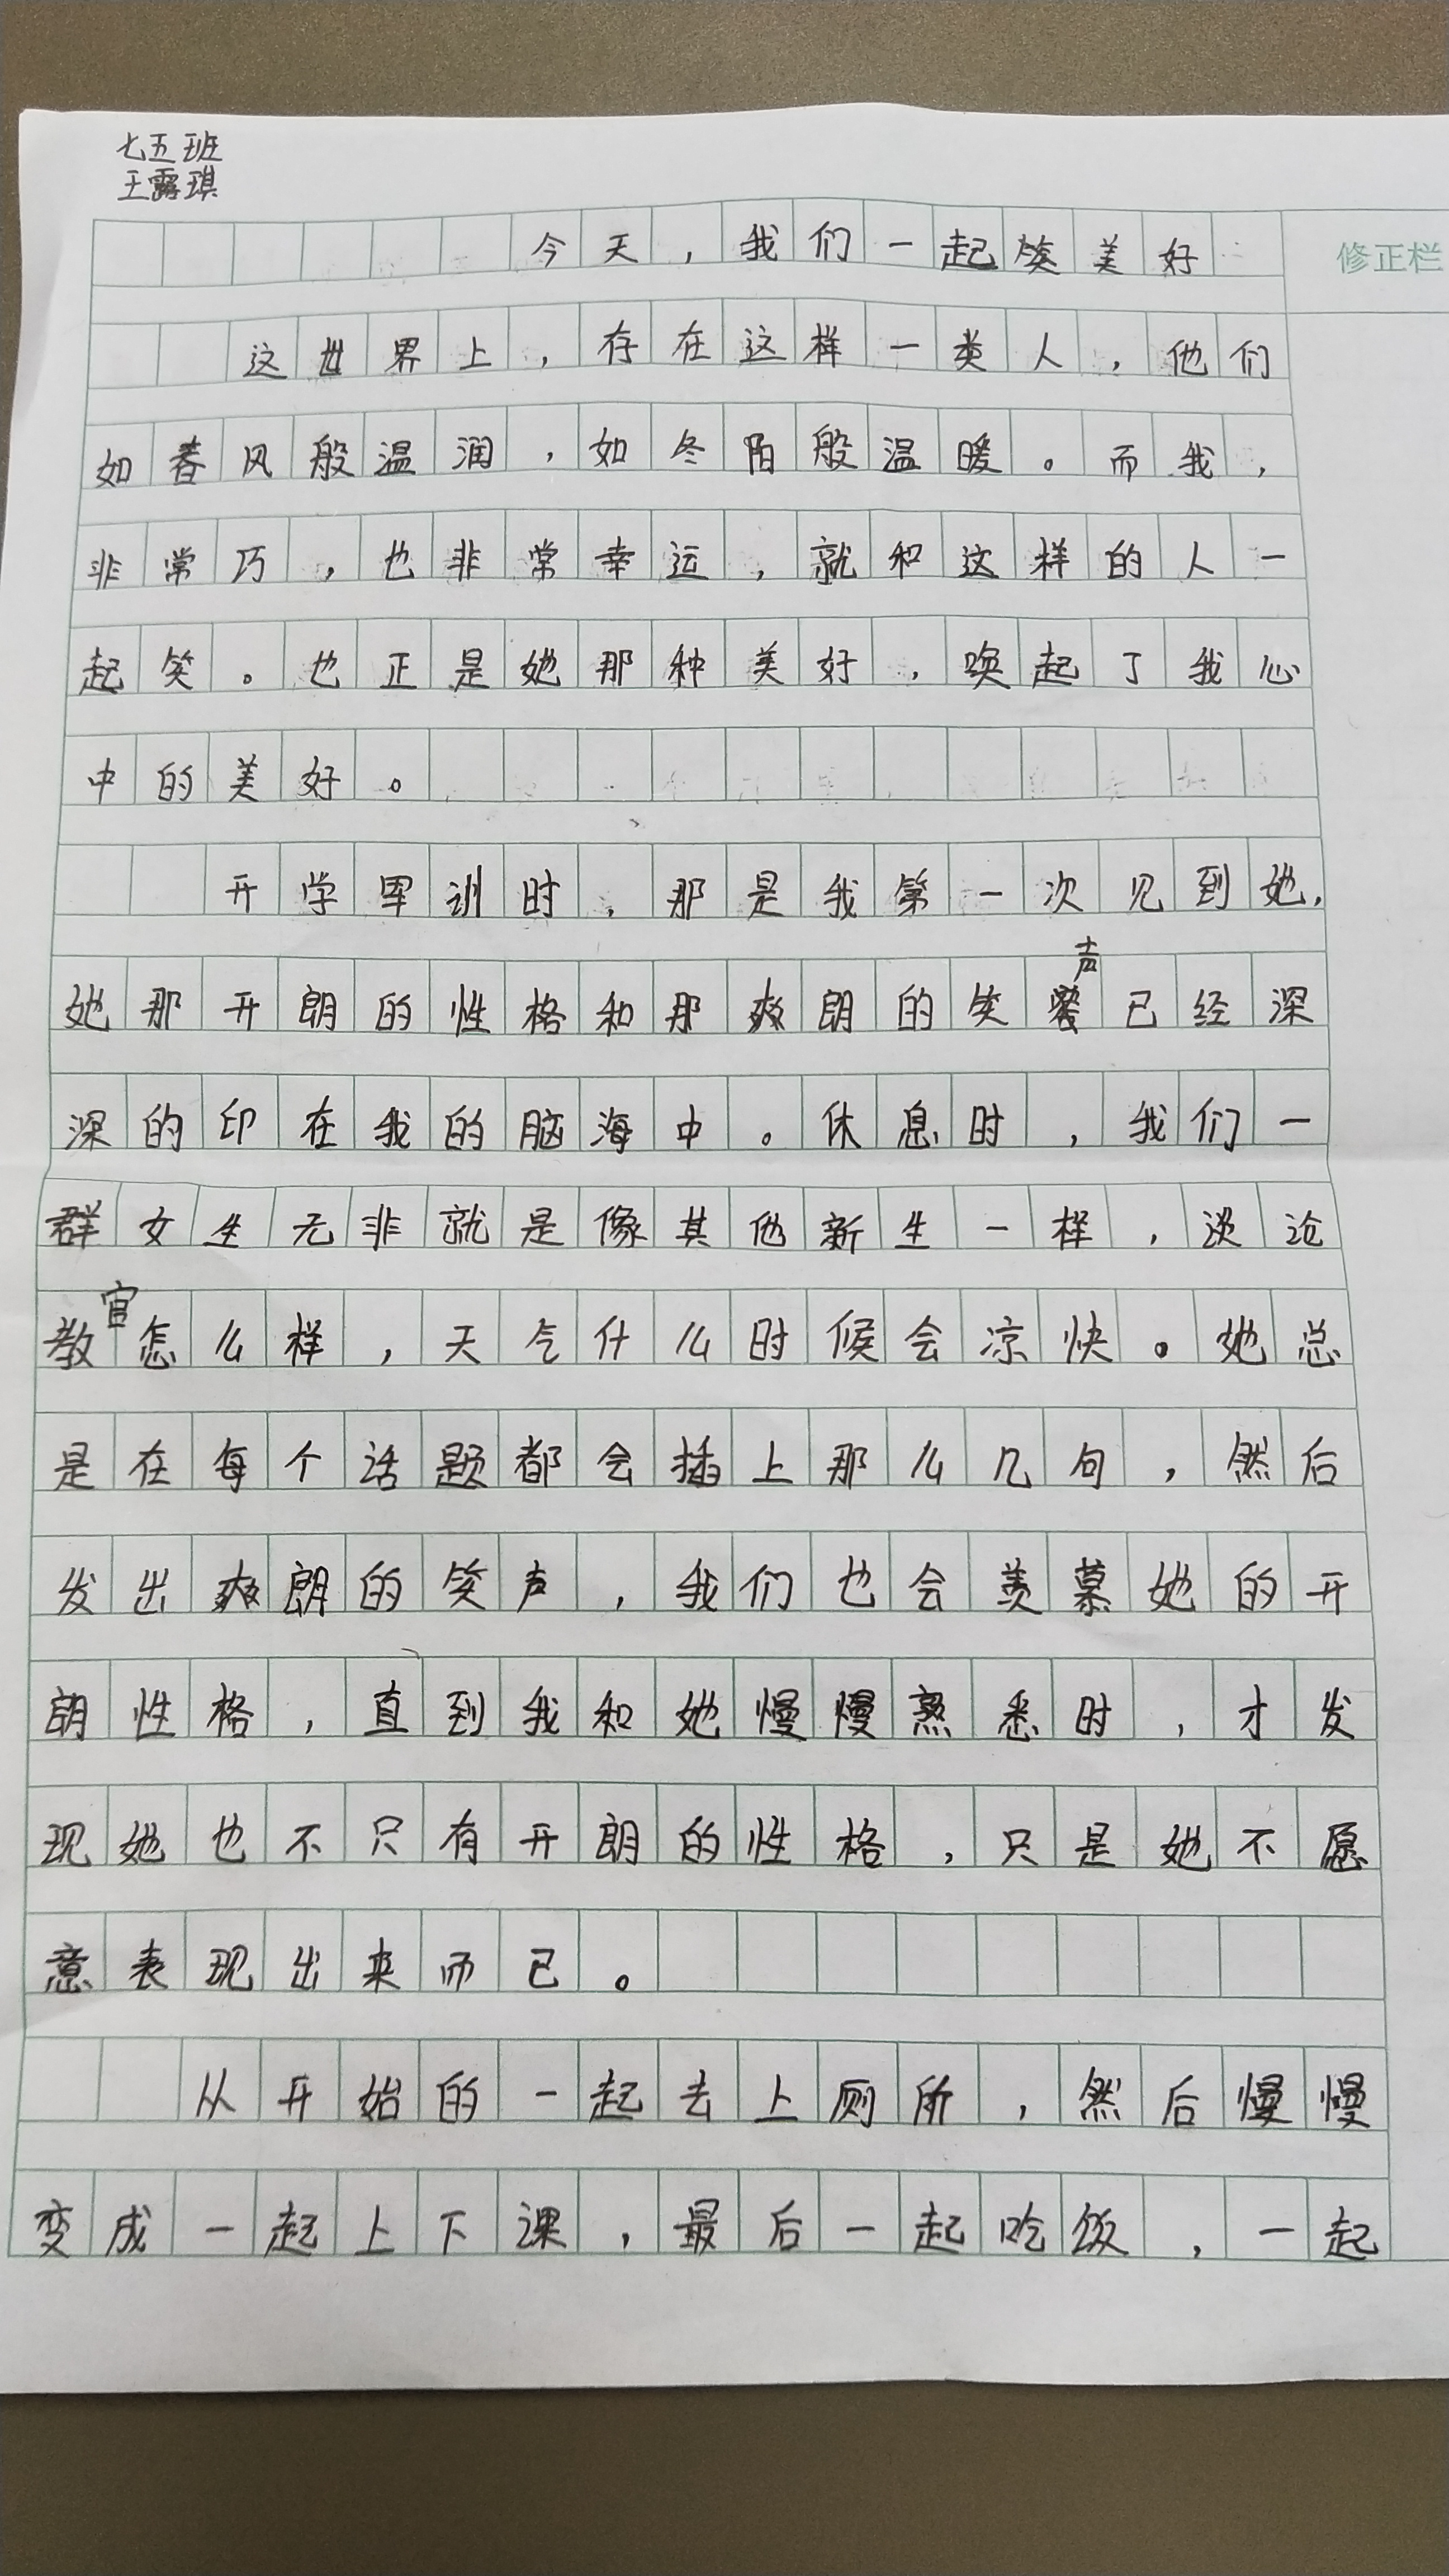 七五班
王露琪
今天，我们一起笑美好
修正栏
这世界上，存在这样一类人，他们
如春风般温润，如冬阳般温暖。而我，
非常巧，也非常幸运，就和这样的人一
起笑。也正是她那种美好，唤起了我心
中的美好。
开学军训时，那是我第一次见到她，
她那开朗的性格和那爽朗的笑声已经深
深的印在我的脑海中。休息时，我们一
群女生无非就是像其他新生一样，谈论
教官怎么样，天气什么时候会凉快。她总
是在每个话题都会插上那么几句，然后
发出爽朗的笑声，我们也会羡慕她的开
朗性格，直到我和她慢慢熟悉时，才发
现她也不只有开朗的性格，只是她不愿
意表现出来而已。
从开始的一起去上厕所，然后慢慢
变成一起上下课，最后一起吃饭，一起